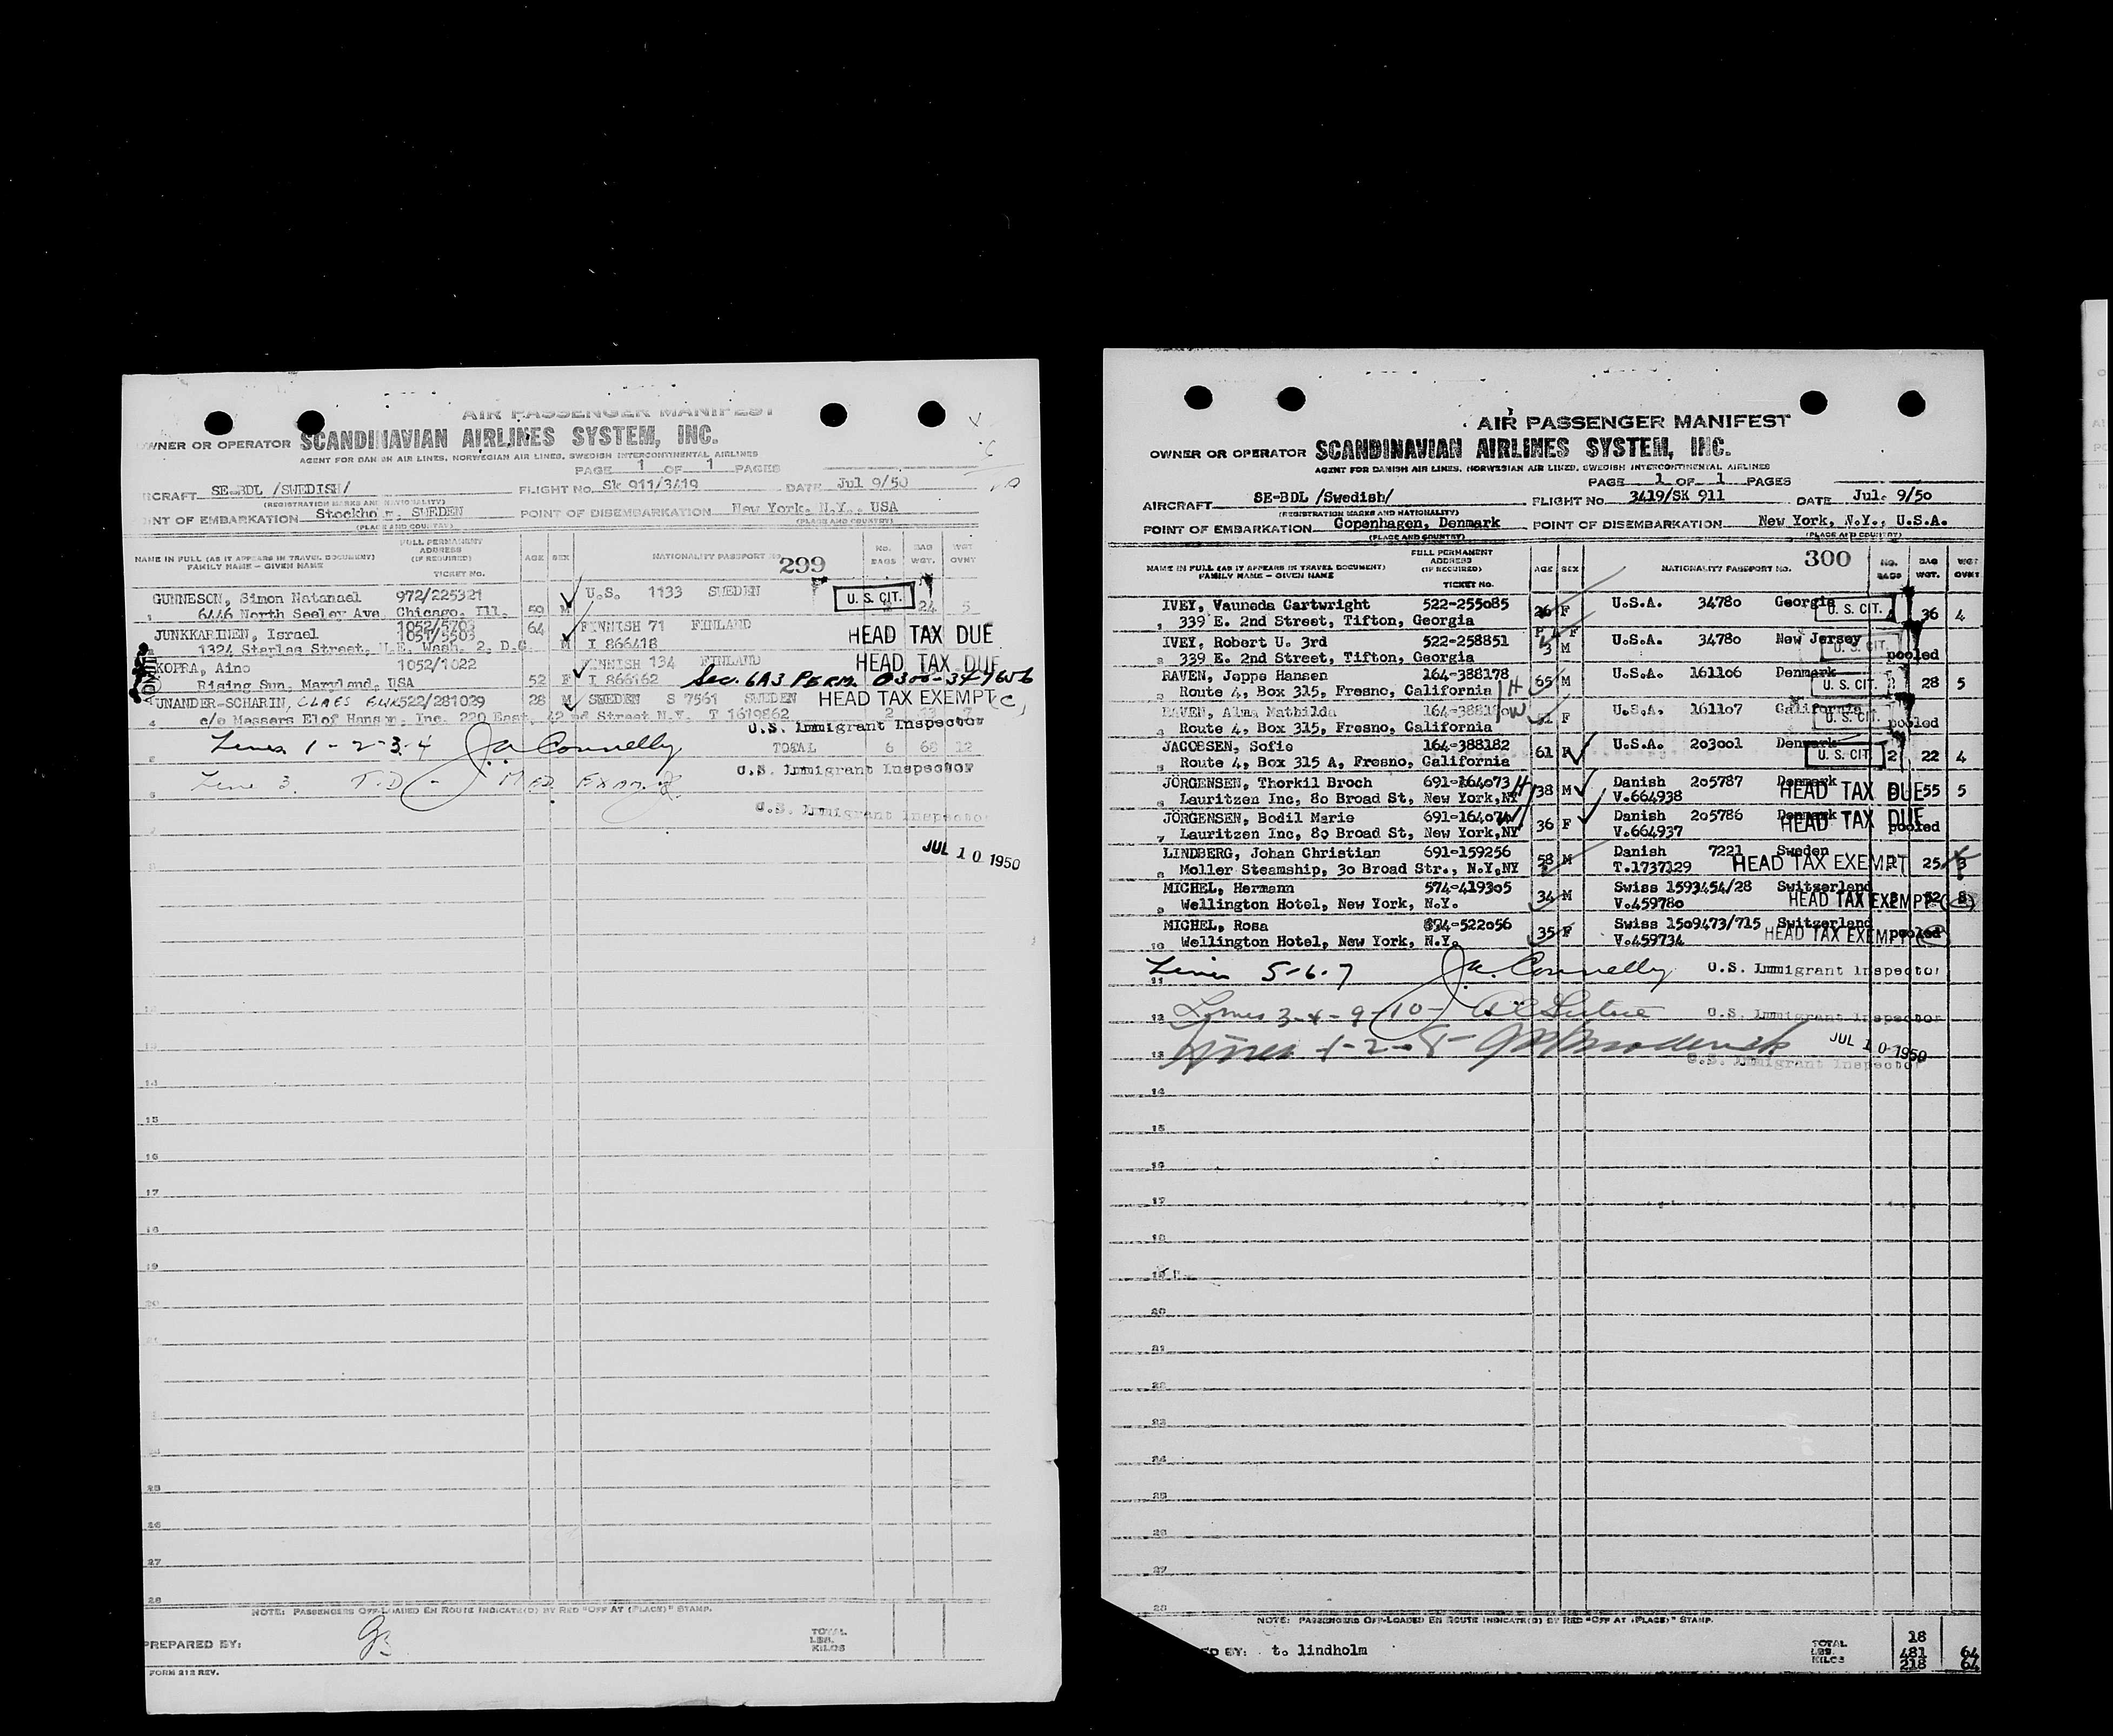 AIR PASSENGER MANIFEST
OWNER OR OPERATOR SCANDINAVIAN AIRLINES SYSTEM, INC.
AGENT FOR DANISH AIR LINES, NORWEGIAN AIR LINES, SWEDISH INTERCONTINENTAL AIRLINES
PAGE 1 OF 1 PAGES
AIRCRAFT SE-BDL /SWEDISH/ FLIGHT No. Sk 911/3419 DATE Jul 9/50
(REGISTRATION MARKS AND NATIONALITY)
POINT OF EMBARKATION Stockholm, SWEDEN POINT OF DISEMBARKATION New York, N.Y., USA
(PLACE AND COUNTRY) (PLACE AND COUNTRY)
NAME IN FULL (AS IT APPEARS IN TRAVEL DOCUMENT) FAMILY NAME – GIVEN NAME FULL PERMANENT ADDRESS (IF REQUIRED) TICKET No. AGE SEX NATIONALITY PASSPORT No. 299 No. BAGS BAG WGT. WGT OVNT
GUNNESON, Simon Natanael 972/225321 U.S. 1133 SWEDEN U. S. CIT.
1 6446 North Seeley Ave, Chicago, Ill. 59 M 24 5
JUNKKARINEN, Israel 1052/5703 1051/5503 64 FINNISH 71 FINLAND HEAD TAX DUE
1324 Staples Street, N.E. Wash. 2, D.C. M I 866418
KOPRA, Aino 1052/1022 FINNISH 134 FINLAND HEAD TAX DUE
Rising Sun, Maryland, USA 52 F I 866162 Sec. 6A3 PERM 0300-
UNANDER-SCHARIN, CLAES 522/281029 28 M SWEDEN S 7561 SWEDEN HEAD TAX EXEMPT C
4 c/o Messers Elof Hanson, Inc. 220 East, 42nd Street N.Y. T 1619862 2
Lines 1-2-3-4 J.A. Connelly U.S. Immigrant Inspector
TOTAL 6 68 12
U.S. Immigrant Inspector
Line 3. T.D. - MED. EXAM.
U.S. Immigrant Inspector
JUL 10 1950
13
14
15
16
17
18
19
20
25
26
27
28
NOTE: PASSENGERS OFF-LOADED EN ROUTE INDICATE(D) BY RED "OFF AT (PLACE)" STAMP.
PREPARED BY: TOTAL LBS. KILOS
FORM 212 REV.
AIR PASSENGER MANIFEST
OWNER OR OPERATOR SCANDINAVIAN AIRLINES SYSTEM, INC.
AGENT FOR DANISH AIR LINES, NORWEGIAN AIR LINES, SWEDISH INTERCONTINENTAL AIRLINES
PAGE 1 OF 1 PAGES
AIRCRAFT SE-BDL /Swedish/ FLIGHT No 3419/SK 911 DATE Jul. 9/50
(REGISTRATION MARKS AND NATIONALITY)
POINT OF EMBARKATION Copenhagen, Denmark POINT OF DISEMBARKATION New York, N.Y., U.S.A.
(PLACE AND COUNTRY) (PLACE AND COUNTRY)
NAME IN FULL (AS IT APPEARS IN TRAVEL DOCUMENT) FAMILY NAME – GIVEN NAME FULL PERMANENT ADDRESS (IF REQUIRED) TICKET NO. AGE SEX NATIONALITY PASSPORT No. 300 No. BAGS BAG WGT. WGT OVNT
IVEY, Vauneda Cartwright 522-255085 26 F U.S.A. 34780 Georgia U. S. CIT. 36 4
1 339 E. 2nd Street, Tifton, Georgia
IVEY, Robert U. 3rd 522-258851 3 M U.S.A. 34780 New Jersey U. S. CIT. pooled
2 339 E. 2nd Street, Tifton, Georgia
RAVEN, Jeppe Hansen 164-388178 65 M U.S.A. 161106 Denmark U. S. CIT. 28 5
3 Route 4, Box 315, Fresno, California H
RAVEN, Alma Mathilda W F U.S.A. 161107 California U. S. CIT. pooled
4 Route 4, Box 315, Fresno, California
JACOBSEN, Sofie 164-388182 61 F U.S.A. 203001 Denmark U. S. CIT. 2 22 4
5 Route 4, Box 315 A, Fresno, California
JÖRGENSEN, Thorkil Broch 691-164073 H 38 M Danish 205787 Denmark HEAD TAX DUE 55 5
6 Lauritzen Inc, 80 Broad St, New York,NY V.664938
JÖRGENSEN, Bodil Marie W 36 F Danish 205786 Denmark HEAD TAX DUE pooled
7 Lauritzen Inc, 80 Broad St, New York,NY V.664937
LINDBERG, Johan Christian 691-159256 58 M Danish 7221 Sweden HEAD TAX EXEMPT 25 3
8 Moller Steamship, 30 Broad Str., N.Y,NY T.1737129
MICHEL, Hermann 574-419305 34 M Swiss 1593454/28 Switzerland HEAD TAX EXEMPT 52 8
9 Wellington Hotel, New York, N.Y. V.459780
MICHEL, Rosa 574-522056 35 F Swiss 1509473/715 Switzerland HEAD TAX EXEMPT pooled
10 Wellington Hotel, New York, N.Y. V.459734
11 Lines 5-6-7 J.A. Connelly U.S. Immigrant Inspector
12 Lines 3-4-9-10- U.S. Immigrant Inspector
13 Lines 1-2-8- JUL 10 1950
U.S. Immigrant Inspector
14
15
16
17
18
19
20
21
22
23
24
25
26
27
28
NOTE: PASSENGERS OFF-LOADED EN ROUTE INDICATE(D) BY RED "OFF AT (PLACE)" STAMP.
ED BY: t. lindholm TOTAL 18
LBS. 481 64
KILOS 218 64